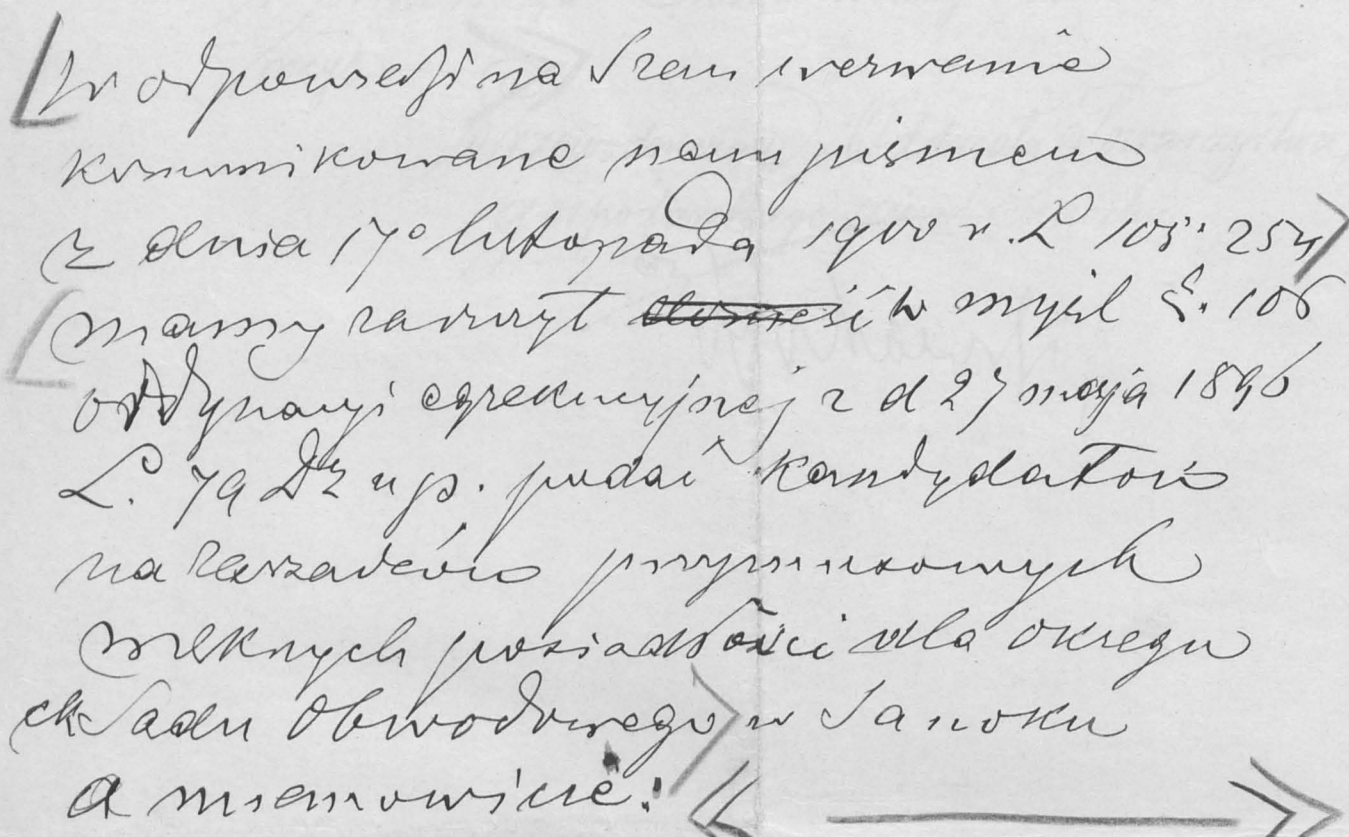 W odpowiedzi na Szan wezwanie
komunikowane nam pismem
z dnia 17° listopada 1900 r. L 105.254
mamy zaszczyt w myśl §. 106
ordynacyi egzekucyjnej z d 27 maja 1896
L. 79 Dz u p. podać kandydatów
na zarządców przymusowych
większych posiadłości dla okręgu
ck Sądu Obwodowego w Sanoku
a mianowicie: